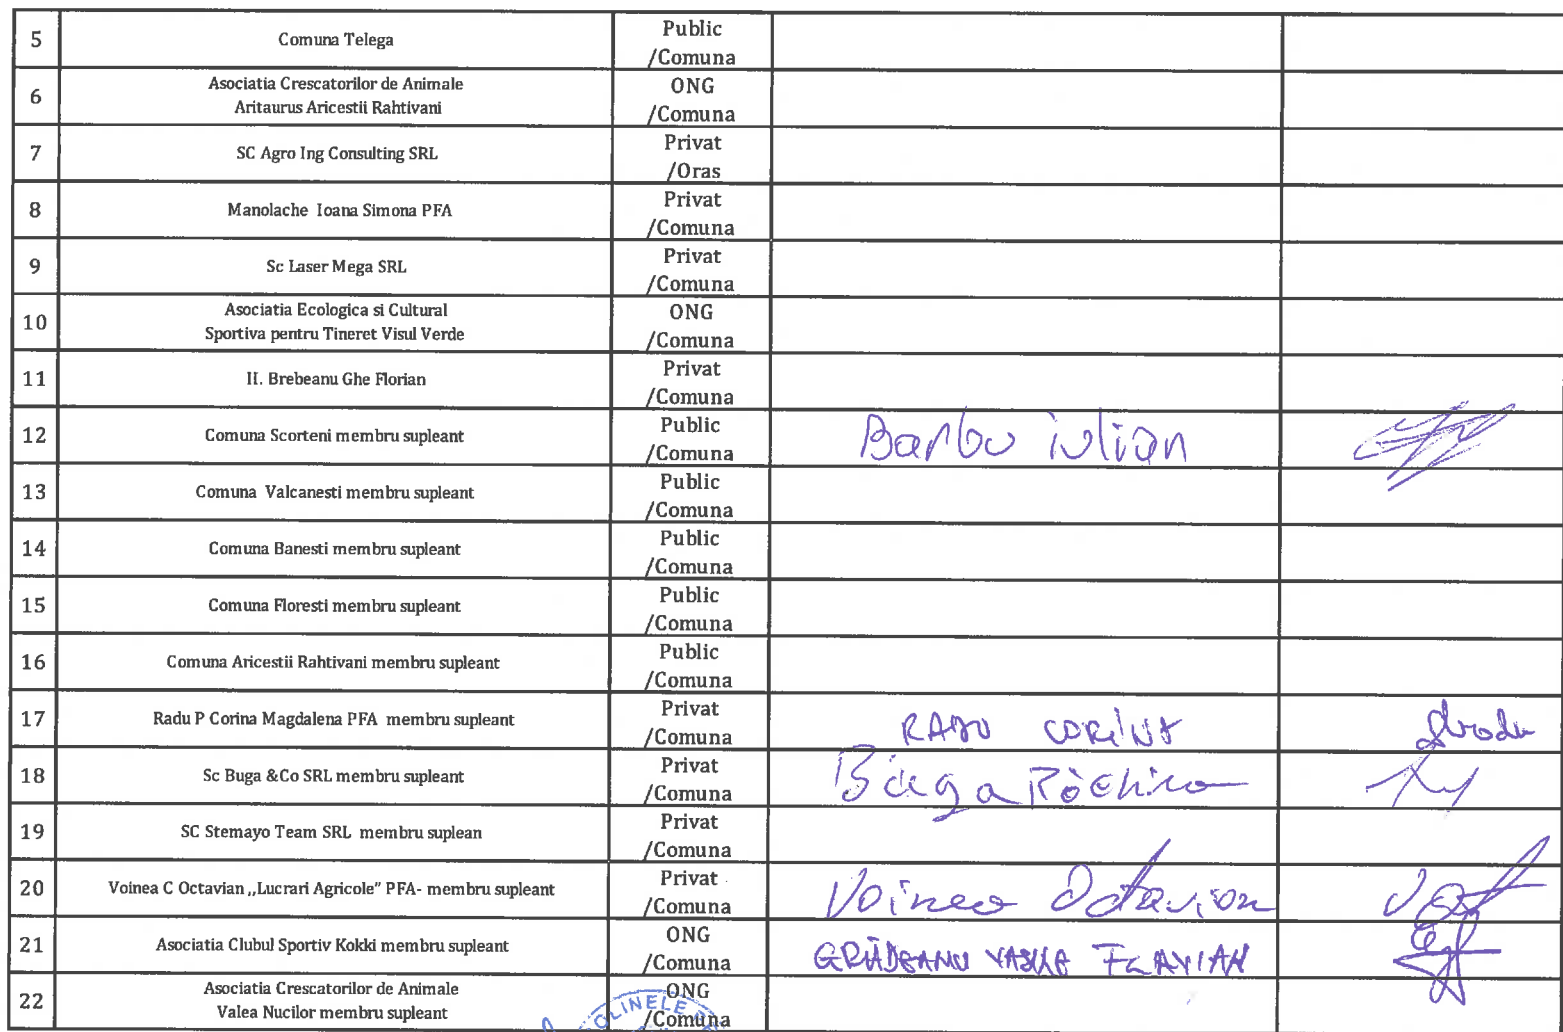 5 Comuna Telega Public
/Comuna
6 Asociatia Crescatorilor de Animale ONG
Aritaurus Aricestii Rahtivani /Comuna
7 SC Agro Ing Consulting SRL Privat
/Oras
8 Manolache Ioana Simona PFA Privat
/Comuna
9 Sc Laser Mega SRL Privat
/Comuna
10 Asociatia Ecologica si Cultural ONG
Sportiva pentru Tineret Visul Verde /Comuna
11 II. Brebeanu Ghe Florian Privat
/Comuna
12 Comuna Scorteni membru supleant Public Barbu iulian
/Comuna
13 Comuna Valcanesti membru supleant Public
/Comuna
14 Comuna Banesti membru supleant Public
/Comuna
15 Comuna Floresti membru supleant Public
/Comuna
16 Comuna Aricestii Rahtivani membru supleant Public
/Comuna
17 Radu P Corina Magdalena PFA membru supleant Privat RADU CORINA
/Comuna
18 Sc Buga &Co SRL membru supleant Privat Buga
/Comuna
19 SC Stemayo Team SRL membru suplean Privat
/Comuna
20 Voinea C Octavian „Lucrari Agricole” PFA- membru supleant Privat Voinea Octavian
/Comuna
21 Asociatia Clubul Sportiv Kokki membru supleant ONG GRĂDEANU VASILE FLAVIAN
/Comuna
22 Asociatia Crescatorilor de Animale ONG
Valea Nucilor membru supleant /Comuna